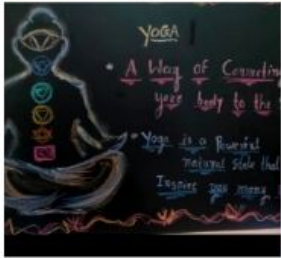 YOGA
• A Way of Connecting
your body to the
• Yoga is a Powerful
natural state that
Inspire you many